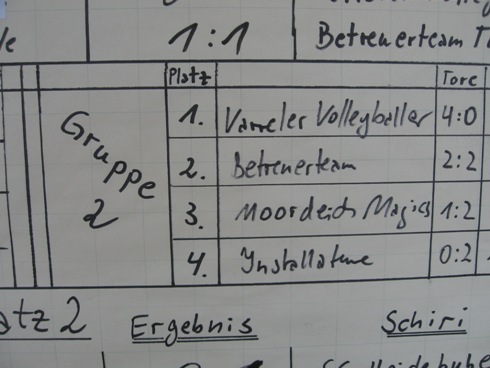 1:1 Betreuerteam
Platz Tore
Gruppe 2
1. Varreler Volleyballer 4:0
2. Betreuerteam 2:2
3. Moordeich Magics 1:2
4. Installateure 0:2
Platz 2 Ergebnis Schiri